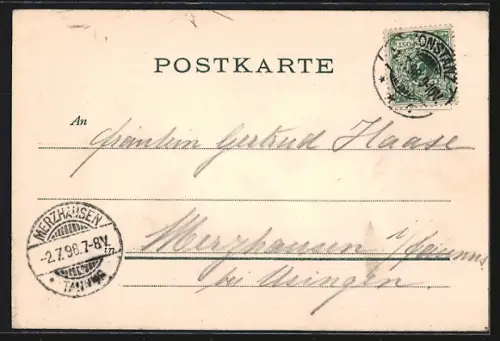 POSTKARTE
KONSTANZ
An
Fräulein Gertrud Haase
MERZHAUSEN
-2.7.98.7-8V.
TAUNUS
in
Merzhausen i/Taunus
bei Usingen.